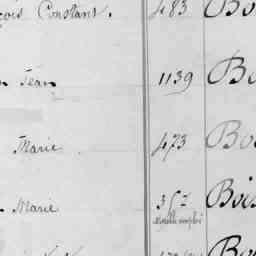 çois Constant. 483 Bo
n Jean 1139 Bo
Marie 473 Bo
Marie 35 Bois